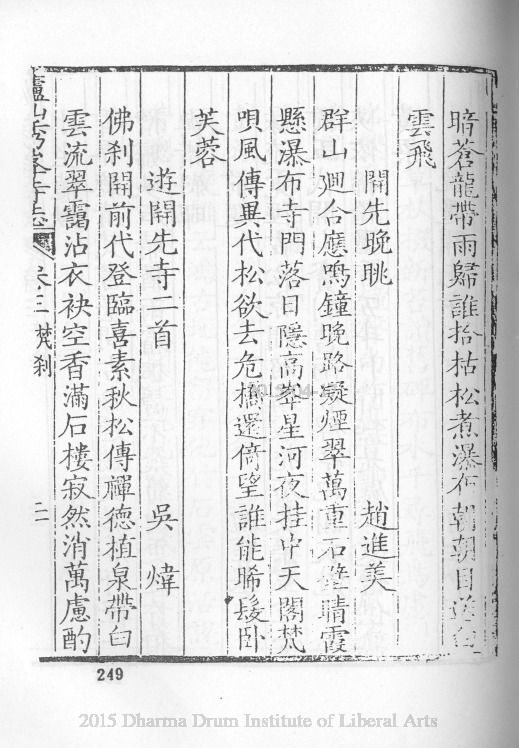 暗蒼龍帶雨歸誰拾枯松煮瀑布朝朝目送白
雲飛
開先晚眺 趙進美
群山迴合應鳴鐘晚路凝煙翠萬重石壁晴霞
懸瀑布寺門落日隱高峯星河夜挂中天閣梵
唄風傳異代松欲去危橋還倚望誰能晞髮臥
芙蓉
遊開先寺二首 吳煒
佛剎開前代登臨喜素秋松傳禪德植泉帶白
雲流翠靄沾衣袂空香滿石樓寂然消萬慮酌
廬山秀峯寺志 卷三 梵剎 二
249
2015 Dharma Drum Institute of Liberal Arts